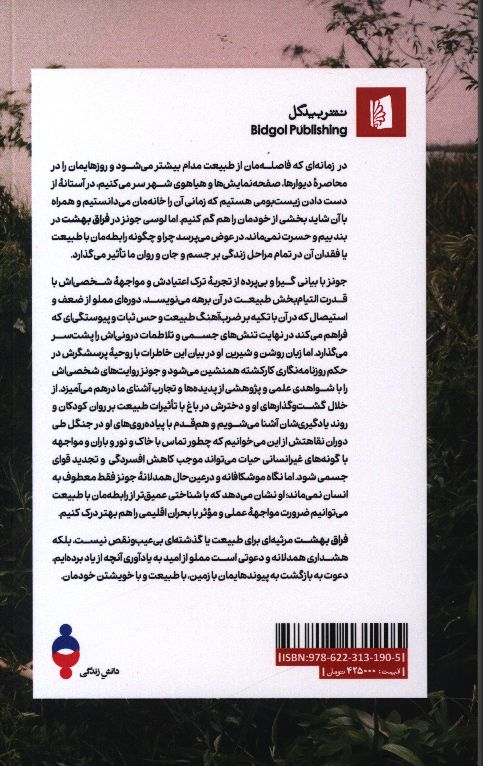 نشر بیدگل
Bidgol Publishing
در زمانه‌ای که فاصله‌مان از طبیعت مدام بیشتر می‌شود و روزهایمان را در
محاصرهٔ دیوارها، صفحه‌نمایش‌ها و هیاهوی شهر سر می‌کنیم، در آستانهٔ از
دست دادن زیست‌بومی هستیم که زمانی آن را خانه‌مان می‌دانستیم و همراه
با آن شاید بخشی از خودمان را هم گم کنیم. اما لوسی جونز در فراق بهشت در
بند بیم و حسرت نمی‌ماند، در عوض می‌پرسد چرا و چگونه رابطه‌مان با طبیعت
یا فقدان آن در تمام مراحل زندگی بر جسم و جان و روان ما تأثیر می‌گذارد.
جونز با بیانی گیرا و بی‌پرده از تجربهٔ ترک اعتیادش و مواجههٔ شخصی‌اش با
قدرت التیام‌بخش طبیعت در آن برهه می‌نویسد، دوره‌ای مملو از ضعف و
استیصال که در آن با تکیه بر ضرب‌آهنگ طبیعت و حس ثبات و پیوستگی‌ای که
فراهم می‌کند در نهایت تنش‌های جسمی و تلاطمات درونی‌اش را پشت‌سر
می‌گذارد. اما زبان روشن و شیرین او در بیان این خاطرات با روحیهٔ پرسشگرش در
حکم روزنامه‌نگاری کارکشته همنشین می‌شود و جونز روایت‌های شخصی‌اش
را با شواهدی علمی و پژوهشی از پدیده‌ها و تجارب آشنای ما درهم می‌آمیزد. از
خلال گشت‌وگذارهای او و دخترش در باغ با تأثیرات طبیعت بر روان کودکان و
روند یادگیری‌شان آشنا می‌شویم و هم‌قدم با پیاده‌روی‌های او در جنگل طی
دوران نقاهتش از این می‌خوانیم که چطور تماس با خاک و نور و باران و مواجهه
با گونه‌های غیرانسانی حیات می‌تواند موجب کاهش افسردگی و تجدید قوای
جسمی شود. اما نگاه موشکافانه و درعین‌حال همدلانهٔ جونز فقط معطوف به
انسان نمی‌ماند؛ او نشان می‌دهد که با شناختی عمیق‌تر از رابطه‌مان با طبیعت
می‌توانیم ضرورت مواجههٔ عملی و مؤثر با بحران اقلیمی را هم بهتر درک کنیم.
فراق بهشت مرثیه‌ای برای طبیعت یا گذشته‌ای بی‌عیب‌ونقص نیست، بلکه
هشداری همدلانه و دعوتی است مملو از امید به یادآوری آنچه از یاد برده‌ایم،
دعوت به بازگشت به پیوندهایمان با زمین، با طبیعت و با خویشتن خودمان.
ISBN: 978-622-313-190-5
قیمت: ۴۲۵۰۰۰ تومان
دانش زندگی